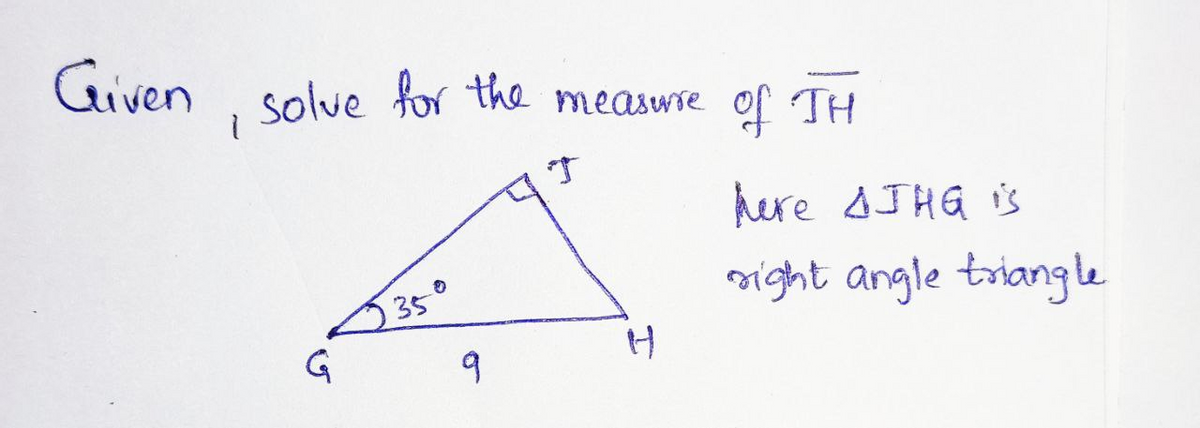 Given, solve for the measure of J̅H̅
J
here ΔJHG is
right angle triangle
35°
G
9
H